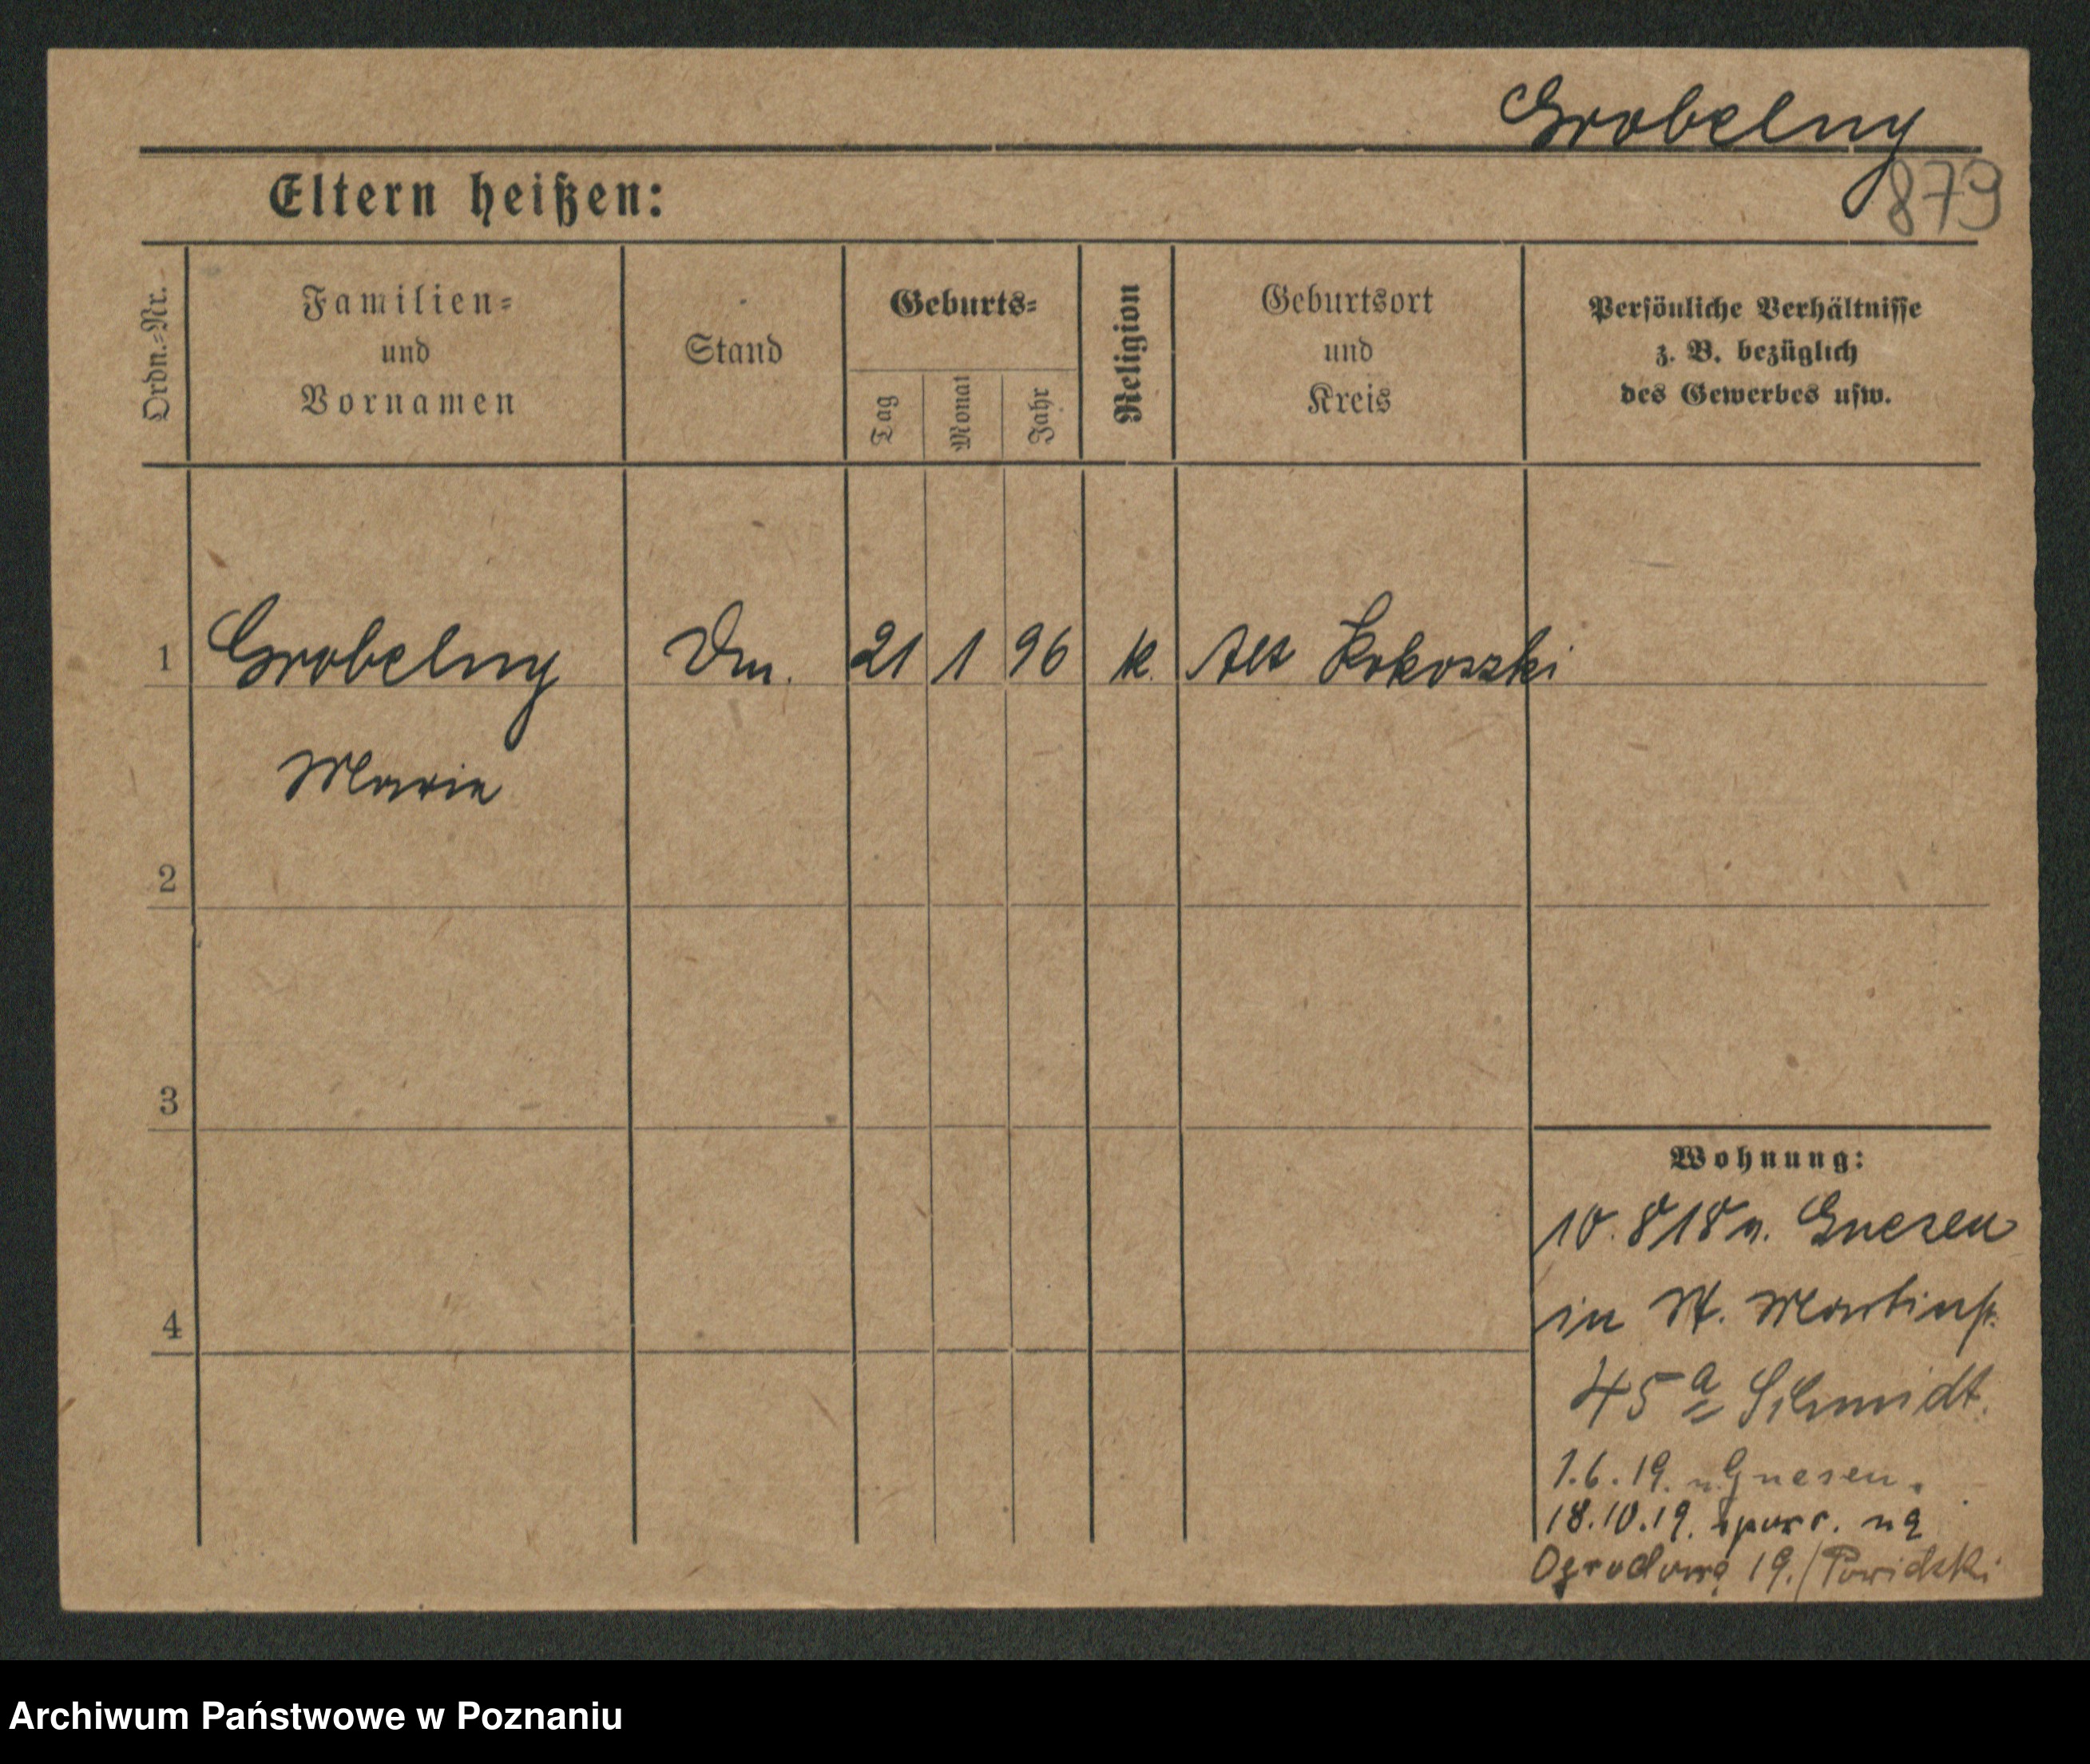 Grobelny
Eltern heißen:
879
Ordn.-Nr.
Familien-
und
Vornamen
Stand
Geburts-
Tag
Monat
Jahr
Religion
Geburtsort
und
Kreis
Persönliche Verhältnisse
z. B. bezüglich
des Gewerbes usw.
1 Grobelny Dm. 21 1 96 k. Alt Kokoszki
Marie
2
3
4
Wohnung:
10.8 18 v. Gnesen
in St. Martinstr.
45a Schmidt.
1.6.19. n. Gnesen.
18.10.19. spowr. na
Ogrodową 19./Powidzki
Archiwum Państwowe w Poznaniu